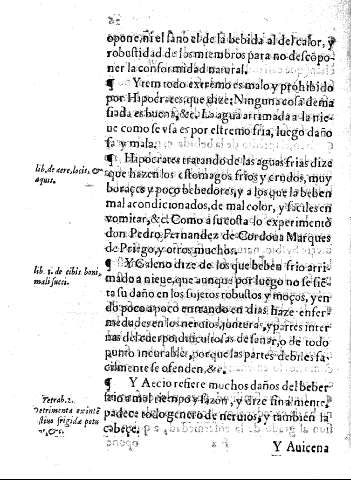 opone, ni el sano el de la bebida al del calor, y
robustidad de los miembros para no descõpo-
ner la conformidad natural.
¶ Ytem todo extremo es malo y prohibido
por Hipocrates, que dize: Ninguna cosa dema
siada es buena, &c. La agua arrimada a la nie-
ue como se vsa es por estremo fria, luego daño
sa y mala.
¶ Hipocrates tratando de las aguas frias dize
que hazen los estomagos frios y crudos, muy
boraçes y poco bebedores, y a los que la beben
mal acondicionados, de mal color, y faciles en
vomitar, &c. Como a su costa lo experimentò
don Pedro Fernandez de Cordoua Marques
de Priego, y otros muchos.
lib. de aere, locis, &
aquis.
¶ Y Galeno dize de los que beben frio arri-
mado a nieue, que aunque por luego no se siẽ-
ta su daño en los sujetos robustos y moços, yen
do poco a poco entrando en dias haze enfer-
medades en los neruios, junturas, y partes inter
nas del cuerpo, dificultosas de sanar, o de todo
punto incurables, porque las partes debiles fa-
cilmente se ofenden, &c.
lib. 1. de cibis boni,
mali succi.
¶ Y Aecio refiere muchos daños del beber
frio a mal tiempo y sazon, y dize finalmente,
padece todo genero de neruios, y tambien la
cabeça.
Tetrab. 2.
Detrimenta existẽ
tiuo frigidæ potu
&c.
Y Auicena